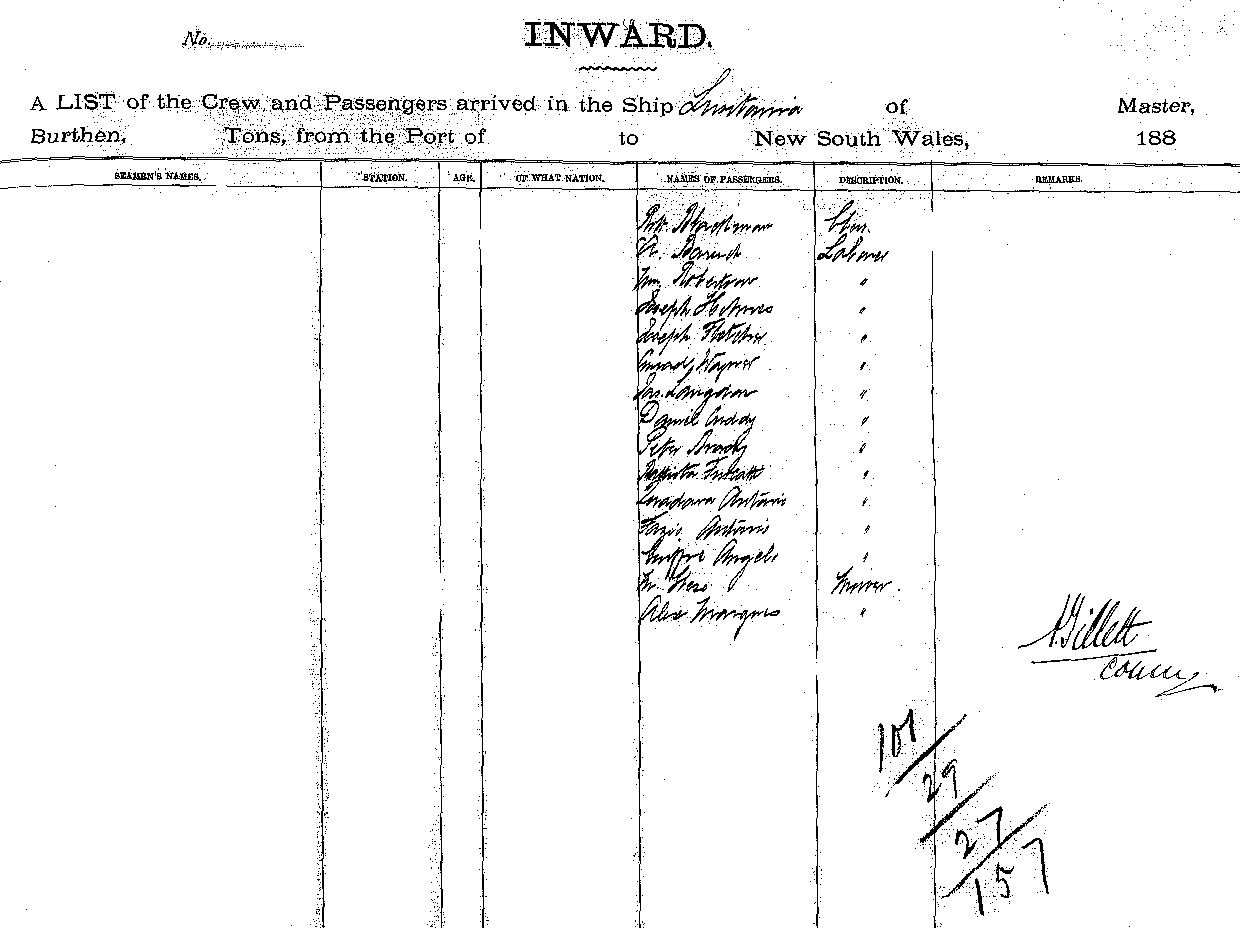 No.
INWARD.
A LIST of the Crew and Passengers arrived in the Ship Lusitania of Master,
Burthen, Tons, from the Port of to New South Wales, 188
SEAMEN'S NAMES. STATION. AGE. OF WHAT NATION. NAMES OF PASSENGERS. DESCRIPTION. REMARKS.
Labourer
Wm. Robertson "
Joseph Holmes "
Joseph Fletcher "
Wagner "
Jas. Langdon "
Daniel Cuddy "
Peter Brady "
"
Antonio "
Fazio Antonio "
Angelo "
Miner.
Alex Marques "
Gillett
101
29
27
157